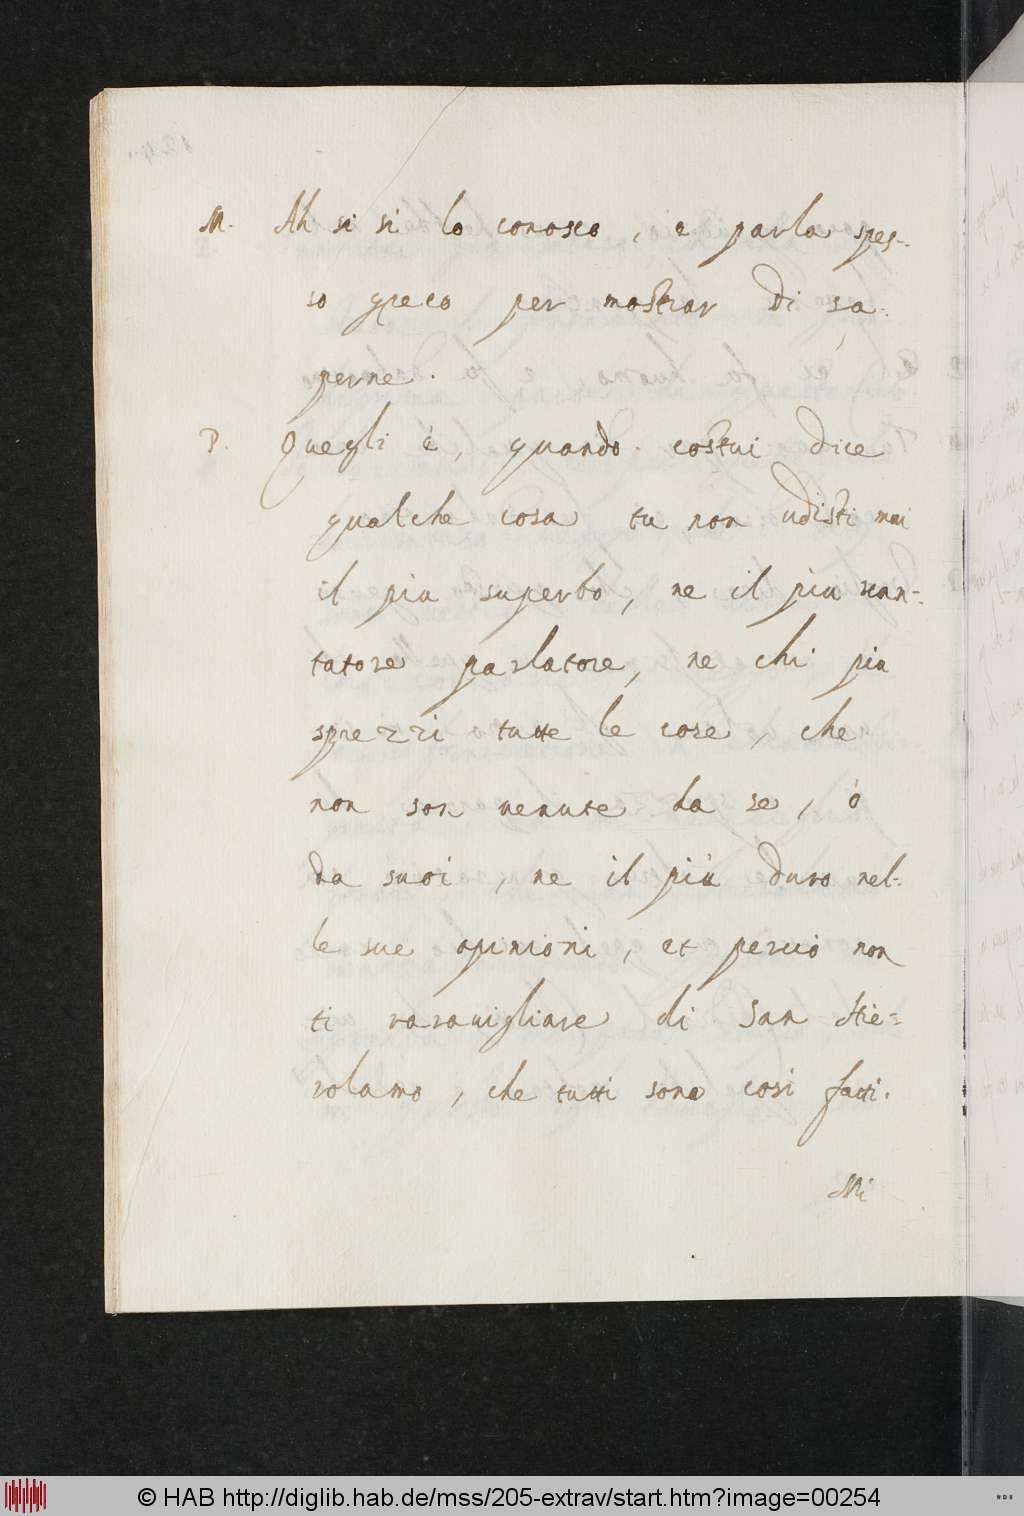 M. Ah si si lo conosco, e parla spes=
so greco per mostrar di sa=
perne.
P. Quegli è, quando costui dice
qualche cosa tu non udisti mai
il piu superbo, ne il piu uan=
tatore parlatore, ne chi piu
sprezzi tutte le cose, che
non son uenute da se, ò
da suoi, ne il più duro nel=
le sue opinioni, et perciò non
ti marauigliare di San Hie=
rolamo, che tutti sono cosi fatti.
Mi
© HAB http://diglib.hab.de/mss/205-extrav/start.htm?image=00254